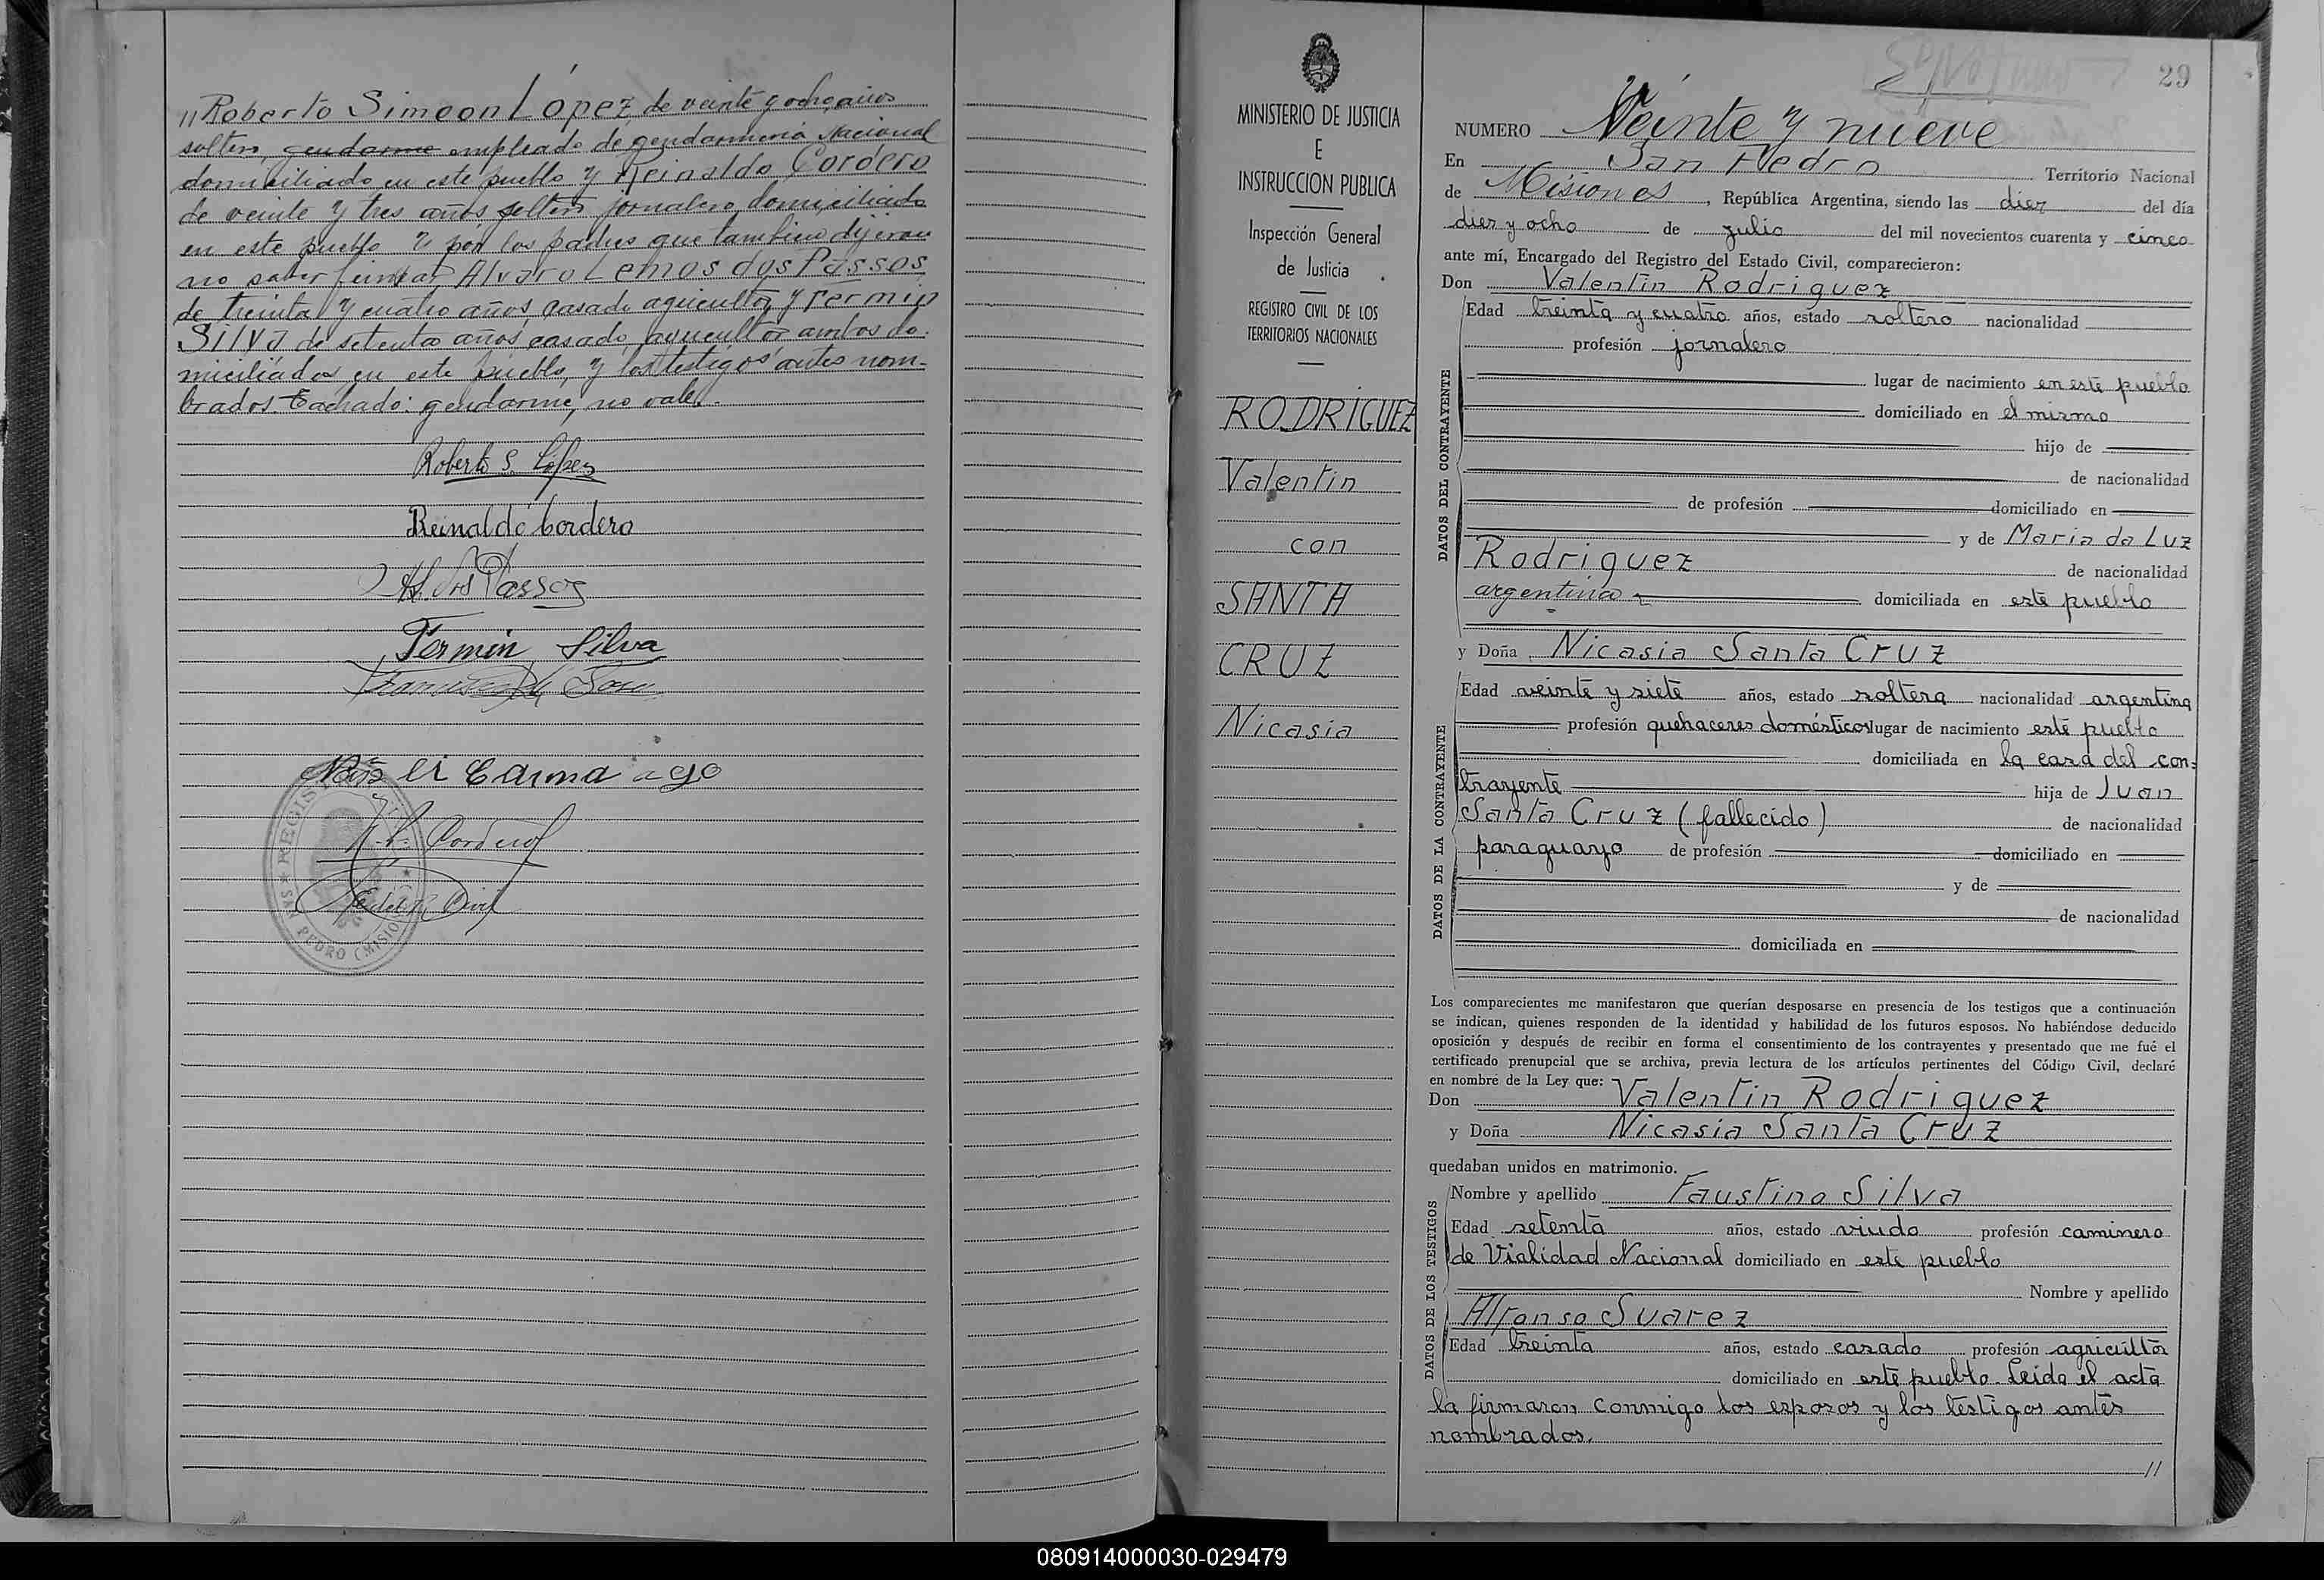 // Roberto Simeon López, de veinte y ocho años
soltero, gendarme empleado de gendarmería Nacional
domiciliado en este pueblo y Reinaldo Cordero
de veinte y tres años soltero jornalero domiciliado
en este pueblo y por los padres que tambien dijeron
no saber firmar Alvaro Lemos dos Passos
de treinta y cuatro años casado agricultor y Fermin
Silva de setenta años casado, agricultor ambos do-
miciliados en este pueblo, y los testigos antes nom-
brados. Tachado: gendarme, no vale.
Roberto S. López
Reinaldo Cordero
Al. dos Passos
Fermin Silva
Cordero
REGISTRO
PEDRO (MISIO
MINISTERIO DE JUSTICIA
E
INSTRUCCION PUBLICA
Inspección General
de Justicia
REGISTRO CIVIL DE LOS
TERRITORIOS NACIONALES
RODRIGUEZ
Valentin
con
SANTA
CRUZ
Nicasia
29
NUMERO Veinte y nueve
En San Pedro Territorio Nacional
de Misiones, República Argentina, siendo las diez del día
diez y ocho de julio del mil novecientos cuarenta y cinco
ante mí, Encargado del Registro del Estado Civil, comparecieron:
Don Valentin Rodriguez
DATOS DEL CONTRAYENTE
Edad treinta y cuatro años, estado soltero nacionalidad
profesión jornalero
lugar de nacimiento en este pueblo
domiciliado en el mismo
hijo de
de nacionalidad
de profesión domiciliado en
y de Maria da Luz
Rodriguez de nacionalidad
argentina domiciliada en este pueblo
y Doña Nicasia Santa Cruz
DATOS DE LA CONTRAYENTE
Edad veinte y siete años, estado soltera nacionalidad argentina
profesión quehaceres domésticos lugar de nacimiento este pueblo
domiciliada en la casa del con-
trayente hija de Juan
Santa Cruz (fallecido) de nacionalidad
paraguayo de profesión domiciliado en
y de
de nacionalidad
domiciliada en
Los comparecientes me manifestaron que querían desposarse en presencia de los testigos que a continuación
se indican, quienes responden de la identidad y habilidad de los futuros esposos. No habiéndose deducido
oposición y después de recibir en forma el consentimiento de los contrayentes y presentado que me fué el
certificado prenupcial que se archiva, previa lectura de los artículos pertinentes del Código Civil, declaré
en nombre de la Ley que:
Don Valentin Rodriguez
y Doña Nicasia Santa Cruz
quedaban unidos en matrimonio.
DATOS DE LOS TESTIGOS
Nombre y apellido Faustino Silva
Edad setenta años, estado viudo profesión caminero
de Vialidad Nacional domiciliado en este pueblo
Nombre y apellido
Alfonso Suarez
Edad treinta años, estado casado profesión agricultor
domiciliado en este pueblo. Leida el acta
la firmaron conmigo los esposos y los testigos antes
nombrados.
//
080914000030-029479